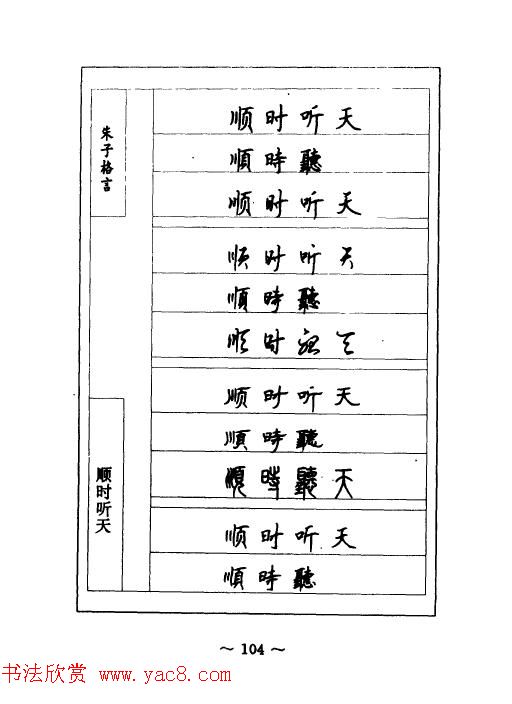 朱子格言
顺时听天
顺时听天
順時聽
顺时听天
顺时听天
順時聽
顺时听天
顺时听天
順時聽
順時聽天
顺时听天
順時聽
～ 104 ～
书法欣赏 www.yac8.com